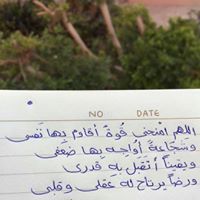 NO DATE
اللهم امنحني قوةً أقاوم بها نفسي
وشجاعةً أواجه بها ضعفي
ويقيناً أتقبل به قدري
ورضاً يرتاح له عقلي وقلبي